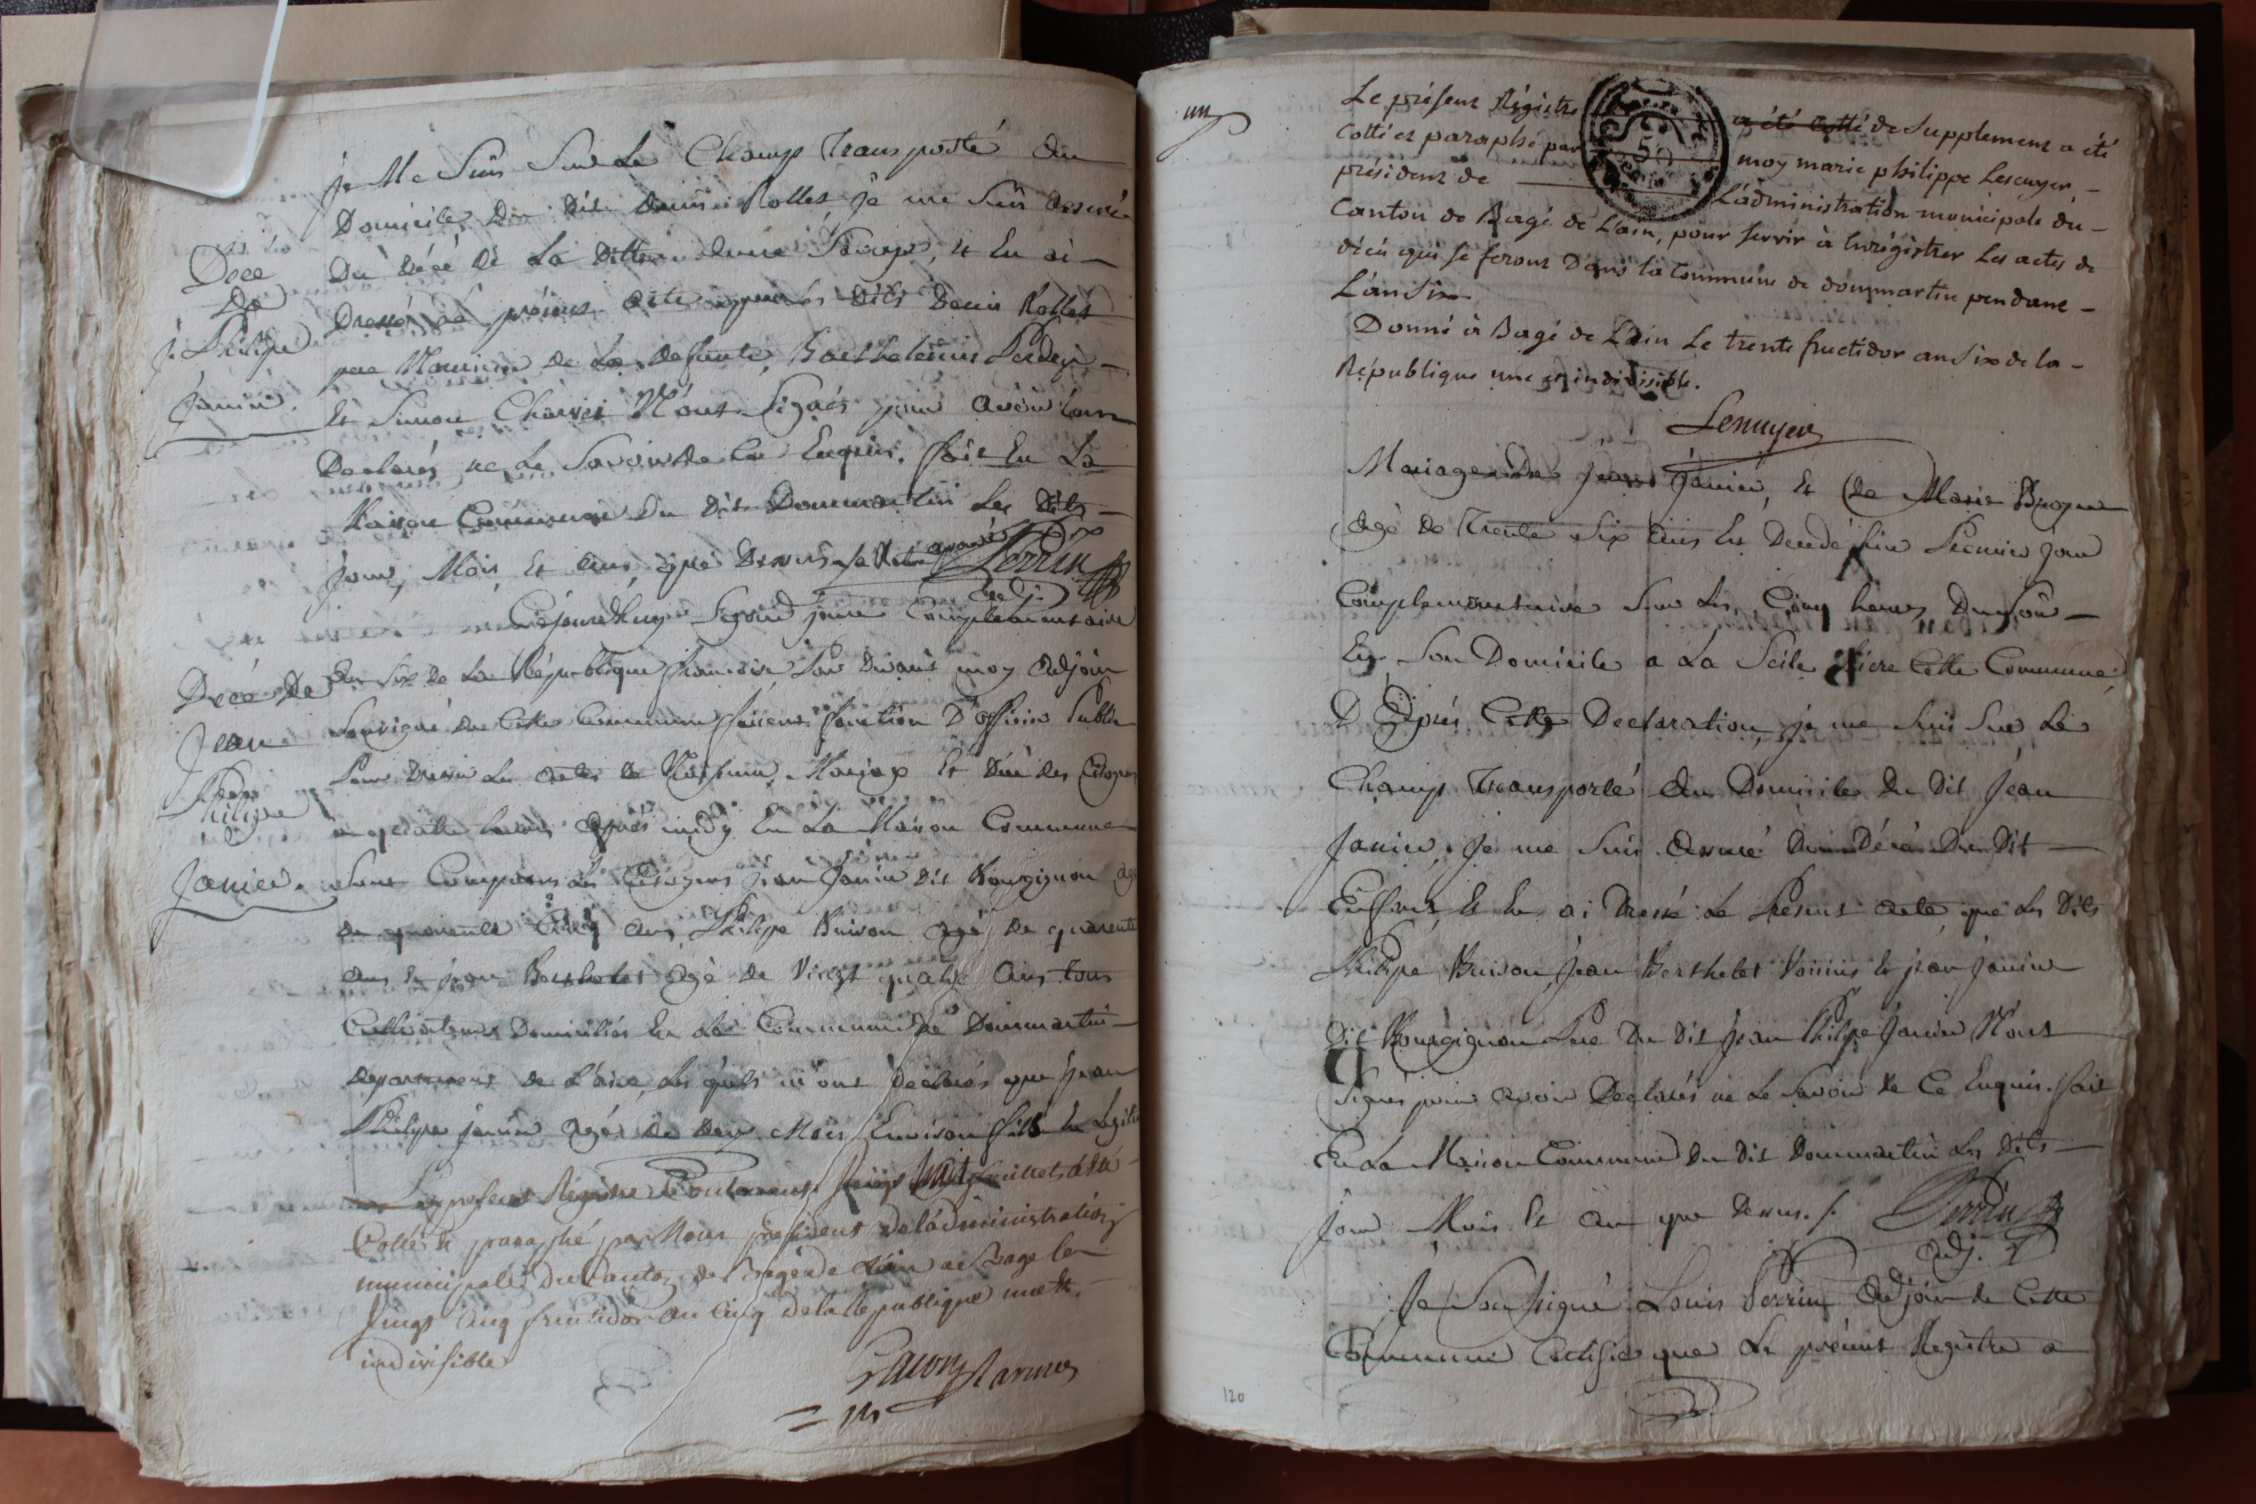 je Me Suis Sur Le Champ Transporté au
Domicile Du dit denis Rollet je me Suis assuré
Du décé de La ditte , et En ai
Dressé Le présent acte que Les dits denis Rollet
pere Nourricier de La defunte, Barthelemis
Et Simon N'ont Signés pour avoir
Declarés ne Le Savoir de Ce Enquis. fait En La
Maison Commune Du dit Dommartin Les dits
jour, Mois et an que Dessus
Perrin
adj.
Décé
De
j. Philipe
Janin.
Cejourd'huy Segond jour Complementaire
Décé De
an Six de La République francoise Par devant moy adjoin
Jean
Soussigné de Cette Commune faisant fonction D'officier Public
Philipe
Pour Dresser Les actes de Naissance, Mariage et Décé des Citoyens
Janin.
a quatre heures après midy En La Maison Commune
Sont Comparus Les Citoyens jean Janin dit Bourgignon agé
de quarente Cinq ans, Philipe Buison agé de quarente
ans et jean Berthelet agé de Vingt quatre ans tous
Cultivateurs Domiciliés En La Commune de Dommartin
departement de L'ain, Les quels m'ont declarés que jean
Philipe janin agé de deux Mois Environ fils
Le present Registre Contenant feuillets a Eté
Cotté et paraphé par Nous president de l'administration
municipale du Canton de Bagé de L'ain a Bagé le
Vingt Cinq fructidor an Cinq de la Republique une et
indivisible
un
Le présent Régistre a été cotté de Supplement a été
Cotté et paraphé par moy marie philippe Lescuyer
président de L'administration municipale du
Canton de Bagé de L'ain, pour servir à Enrégistrer Les actes de
décès qui se feront Dans la Commune de dommartin pendant
L'an Six
Donné à Bagé de L'ain Le trente fructidor an Six de la
République une et indivisible.
Lescuyer
Mariage De jean Janin, Et De Marie
agé de Trente Six ans Est Decedé hier Premier jour
Complementaire Sur Les Cinq heures Du Soir
En Son Domicile a La Cette Commune
D'Après Cette Declaration, je me Suis Sur Le
Champ Transporté au Domicile Du dit Jean
Janin, je me Suis assuré Du Décé Du Dit
Enfant, Et En ai Dressé Le Present acte que Les Dits
Philipe Buison, Jean Berthelet Voisins Et jean Janin
Dit Bourgignon Pere Du Dit Jean Philipe Janin N'ont
Signés pour avoir Declarés ne Le Savoir de Ce Enquis. fait
En La Maison Commune Du Dit Dommartin Les Dits
jour Mois Et an que Dessus. /.
Perrin
adj.
Je Soussigné Louis Perrin adjoin de Cette
Commune Certifie que Le présent Registre a
120